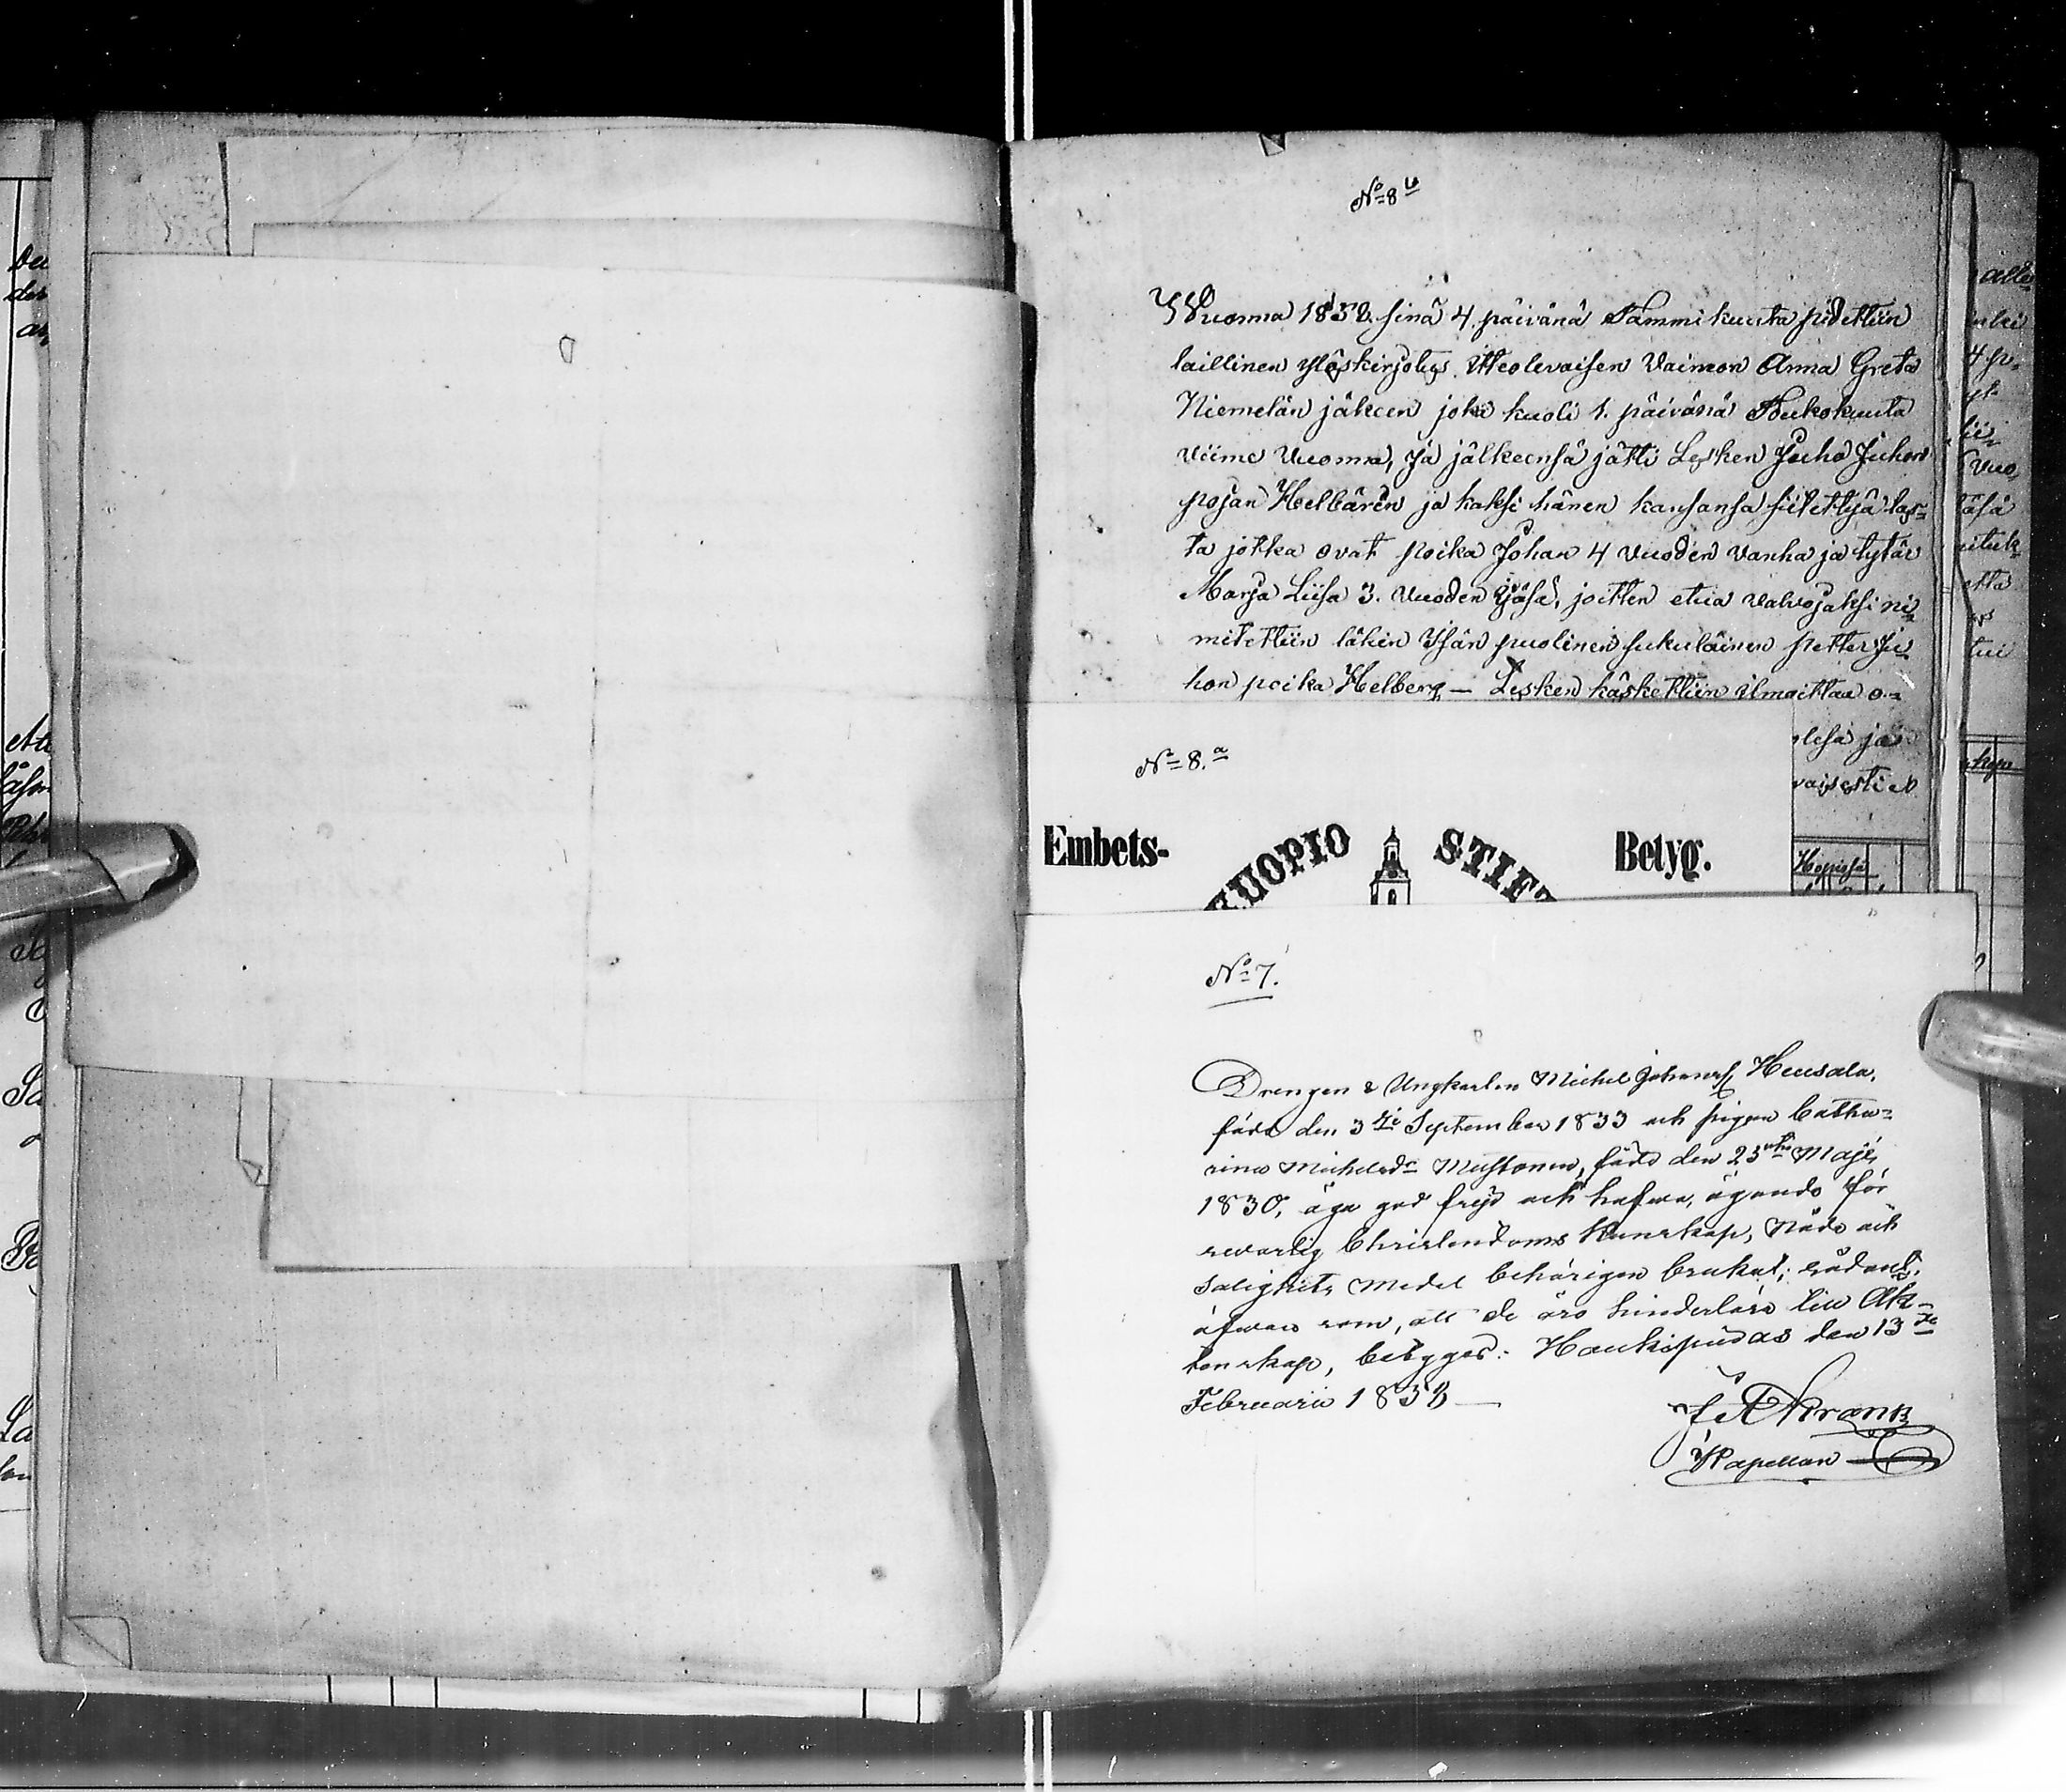 No 8 b
Wuonna 1858 sinä 4 päivänä Tammikuuta pidettiin
laillinen ylöskirjotus itteolevaisen Vaimon Anna Greta
Niemelän jäkeen joka kuoli 1. päivänä Toukokuuta
viime Vuonna, ja jälkeensä jätti Lesken Juho Juhon
pojan Helbärin ja kaksi hänen kansansa siitettyä las-
ta jotka ovat poika Johan 4 vuoden vanha ja tytär
Marja Liisa 3. vuoden ijäsä, joitten etua valvojaksi ni-
mitettiin lähin Isän puolinen sukulainen Petter Ju-
hon poika Helberg — Lesken käskettiin ilmoittaa o-
lesa ja
vaisesti e
Hopiosa
No 8. a
Embets- KUOPIO STIFT Betyg.
No 7.
Drengen & Ungkarlen Michel Johanss Heusala,
född den 3die September 1833 och pigan Catha-
rina Michelsdr Mustonen, född den 23 Maji
1830, äga god frejd och hafva, ägande för
svarlig Christendoms Kunskap, Nåde och
Salighets Medel behörigen brukat; sådant,
äfven som, att de äro hinderlösa till Äk-
tenskap, betygas: Haukipudas den 13de
Februarii 1858 —
Krank
Kapellan